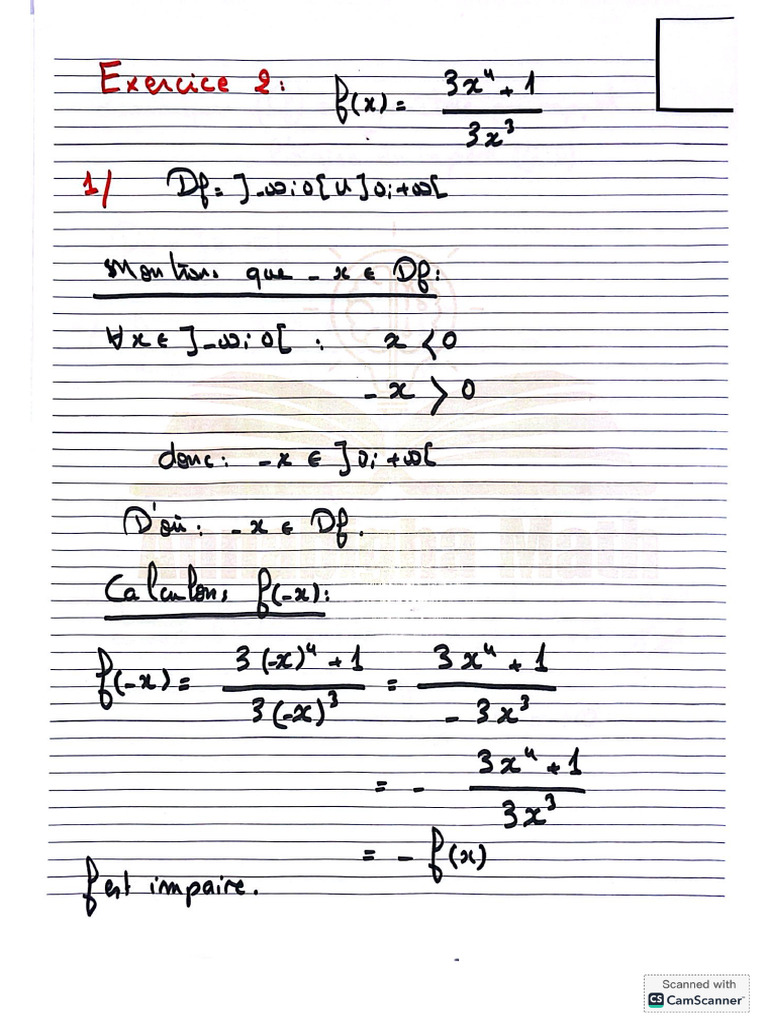 Exercice 2: f(x) = (3x⁴ + 1) / (3x³)
1/ Df = ]-∞; 0[ ∪ ]0; +∞[
Montrons que -x ∈ Df:
∀x ∈ ]-∞; 0[ : x < 0
-x > 0
donc: -x ∈ ]0; +∞[
D'où: -x ∈ Df.
Calculons f(-x):
f(-x) = (3(-x)⁴ + 1) / (3(-x)³) = (3x⁴ + 1) / (-3x³)
= - (3x⁴ + 1) / (3x³)
= - f(x)
f est impaire.
Scanned with
CS CamScanner